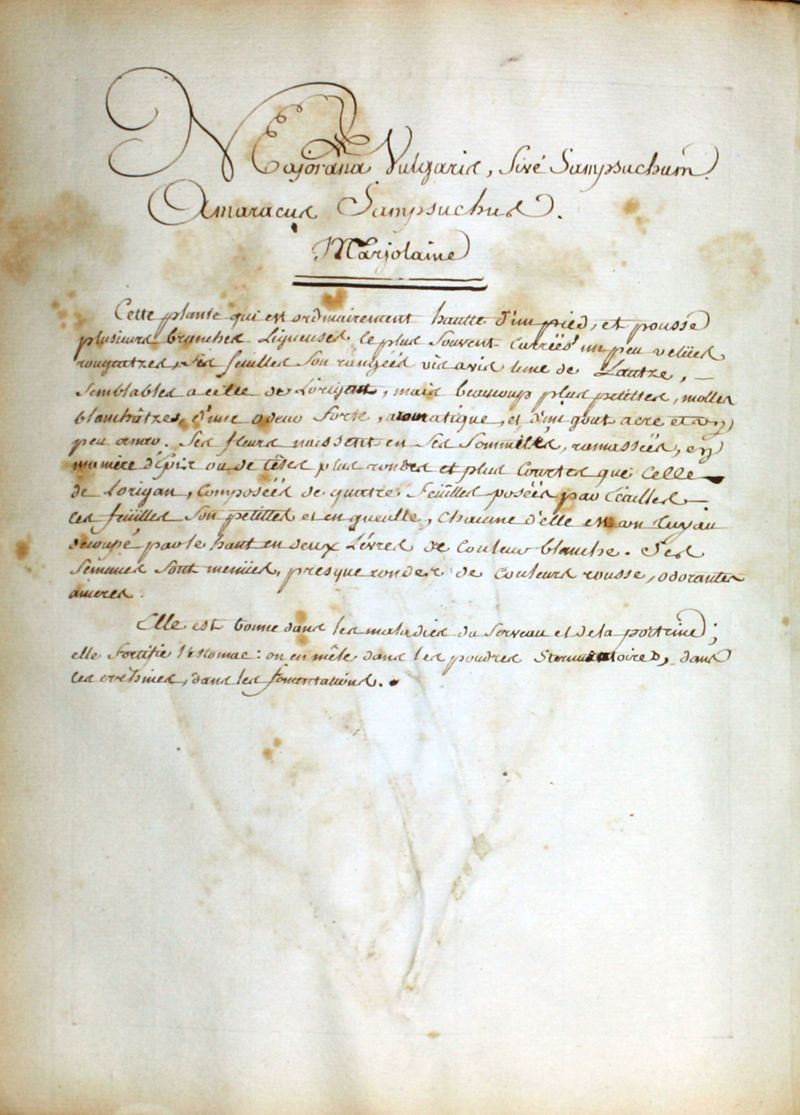 Majorana Vulgaris, Sivé Sampsuchum
Amaracus Sampsuchus.
Marjolaine
Cette plante qui est ordinairement hautte d'un pied, et pousse
plusieurs branches Ligneuses, le plus souvent carrées un peu velües
rougeatres, ses feuilles son rangées vis avis lune de Lautre,
Semblables a celle de Lorigan, mais beaucoup plus petittes, molles
blanchâtres, d'une odeur forte, aromatique, et d'un gout acre et un
peu amer. Ses fleurs naissent en ses Sommites, ramassées, en
maniere d'épis ou de têtes plus rondes et plus Courtes que Celle
de Lorigan, Composées de quatre feuilles posées par Ecailles
ces feuilles Son petittes et en gueulle, Chacune d'elle est un tuyau
découpé par le haut en deux Lévres de Couleur blanche. Ses
Semmes sont menües, presque rondes de Couleurs rousse, odorantes
ameres.
Elle est bonne dans les maladies du Serveau et de la poitrine;
elle fortifie l'estomac: on en mêle dans les poudres dans
les errhines, dans les fomentations.